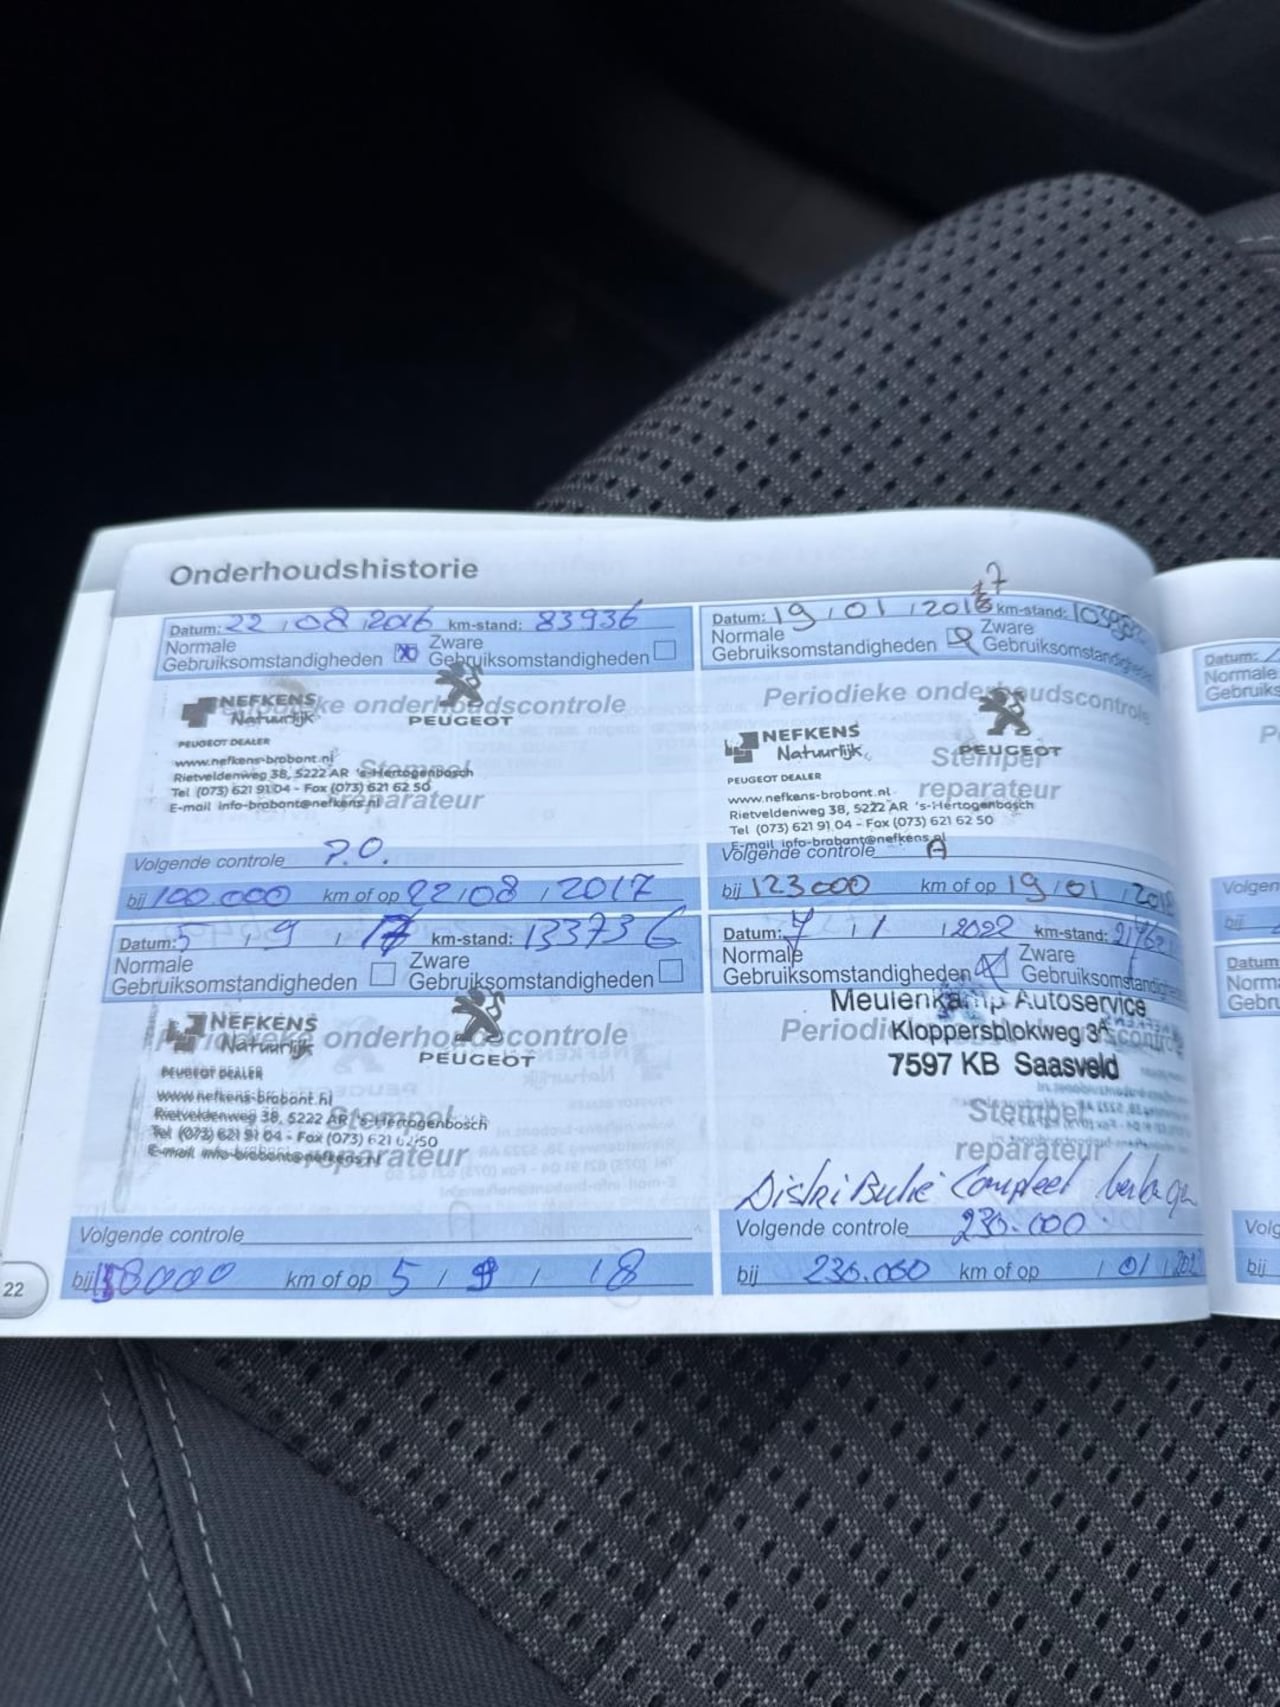 Onderhoudshistorie
Datum: 22 / 08 / 2016 km-stand: 83936
Normale
Gebruiksomstandigheden
Zware
Gebruiksomstandigheden
Periodieke onderhoudscontrole
NEFKENS
Natuurlijk
PEUGEOT
PEUGEOT DEALER
www.nefkens-brabant.nl
Stempel
Rietveldenweg 38, 5222 AR 's-Hertogenbosch
Tel (073) 621 91 04 - Fax (073) 621 62 50
E-mail info-brabant@nefkens.nl
reparateur
Volgende controle P.O.
bij 100.000 km of op 22 / 08 / 2017
Datum: 19 / 01 / 201 7 km-stand:
Normale
Gebruiksomstandigheden
Zware
Gebruiksomstandigheden
Periodieke onderhoudscontrole
NEFKENS
Natuurlijk
PEUGEOT
Stempel
PEUGEOT DEALER
reparateur
www.nefkens-brabant.nl
Rietveldenweg 38, 5222 AR 's-Hertogenbosch
Tel (073) 621 91 04 - Fax (073) 621 62 50
E-mail info-brabant@nefkens.nl
Volgende controle A
bij 123000 km of op 19 / 01 / 2018
Datum: 5 / 9 / 17 km-stand: 133736
Normale
Gebruiksomstandigheden
Zware
Gebruiksomstandigheden
Periodieke onderhoudscontrole
NEFKENS
Natuurlijk
PEUGEOT
PEUGEOT DEALER
www.nefkens-brabant.nl
Stempel
Rietveldenweg 38, 5222 AR 's-Hertogenbosch
Tel (073) 621 91 04 - Fax (073) 621 62 50
E-mail info-brabant@nefkens.nl
reparateur
Volgende controle
bij 158000 km of op 5 / 9 / 18
Datum: 7 / 1 / 2022 km-stand:
Normale
Gebruiksomstandigheden
Zware
Gebruiksomstandigheden
Meulenkamp Autoservice
Kloppersblokweg 3A
7597 KB Saasveld
Stempel
reparateur
Distributie Compleet
Volgende controle 230.000
bij 230.000 km of op / 01 /
22
Datum:
Normale
Gebruiks
Volgen
bij
Datum
Norma
Gebru
Volg
bij